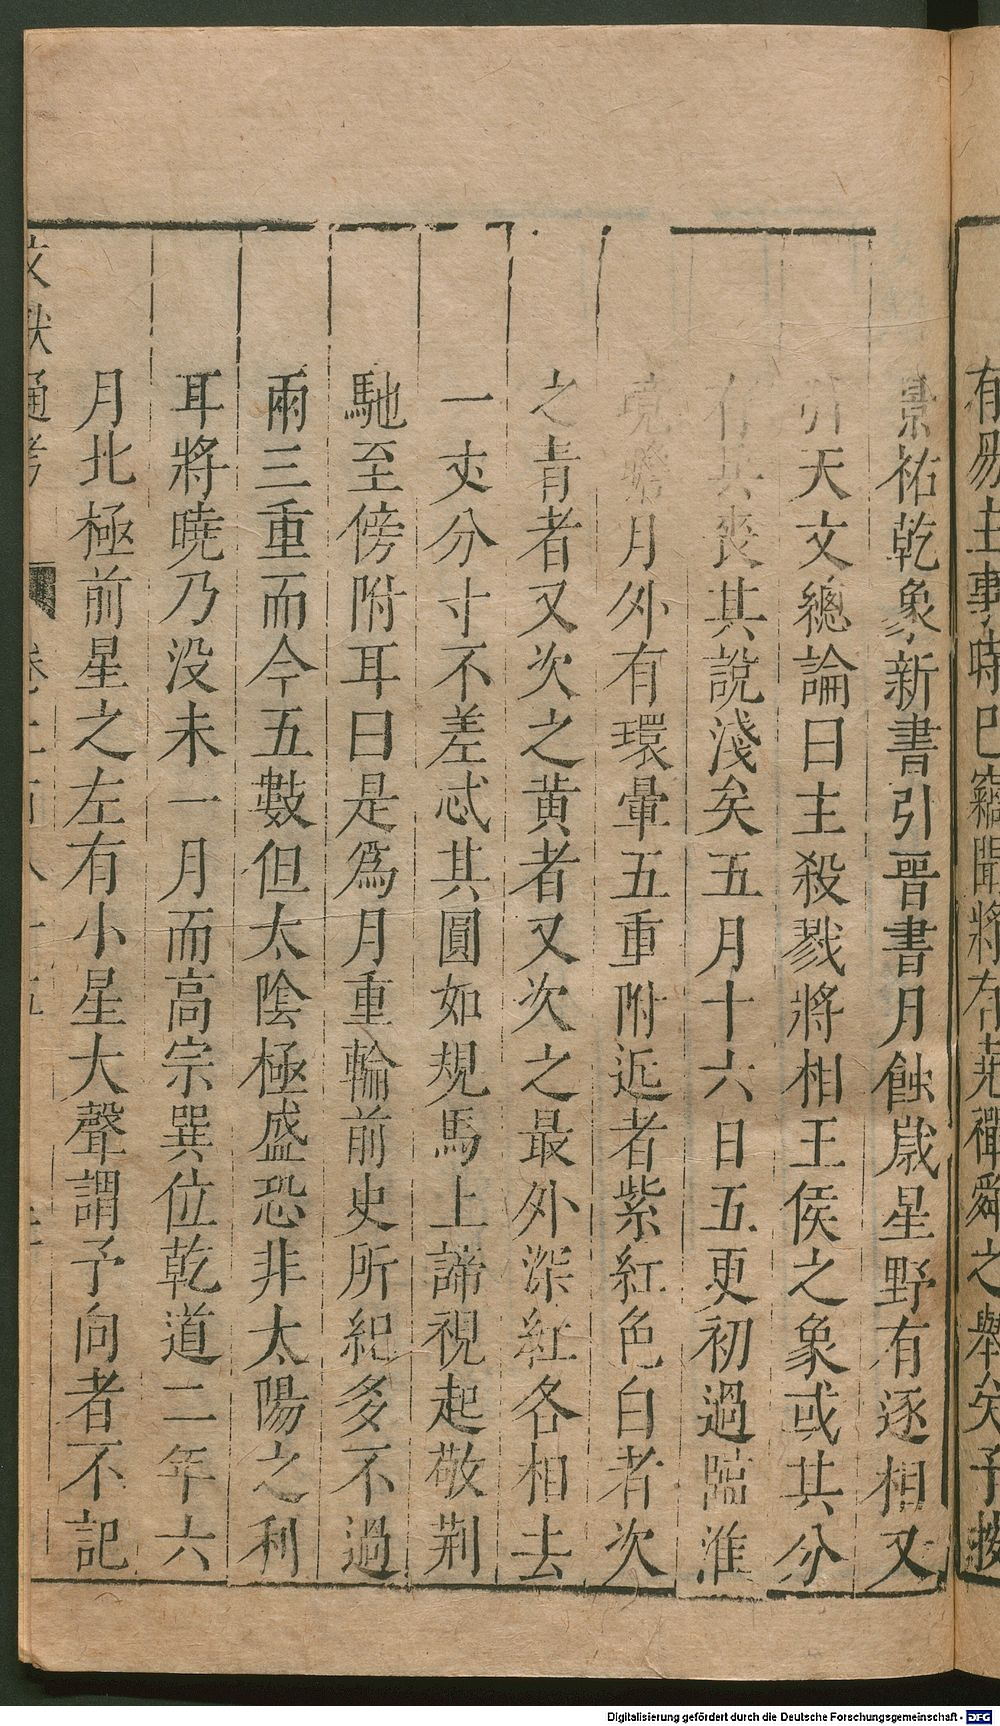 有爲主事時巴竊聞將有堯禪舜之舉矣予按
景祐乾象新書引晋書月蝕歲星野有逐相又
引天文總論曰主殺戮將相王侯之象或其分
有兵喪其說淺矣五月十六日五更初過臨淮
見蟾月外有環暈五重附近者紫紅色白者次
之青者又次之黄者又次之最外深紅各相去
一丈分寸不差忒其圓如規馬上諦視起敬荆
馳至傍附耳曰是爲月重輪前史所紀多不過
兩三重而今五數但太陰極盛恐非太陽之利
耳將曉乃没未一月而高宗巽位乾道二年六
月北極前星之左有小星大聲謂予向者不記
文獻通考 卷二百八十五
Digitalisierung gefördert durch die Deutsche Forschungsgemeinschaft - DFG